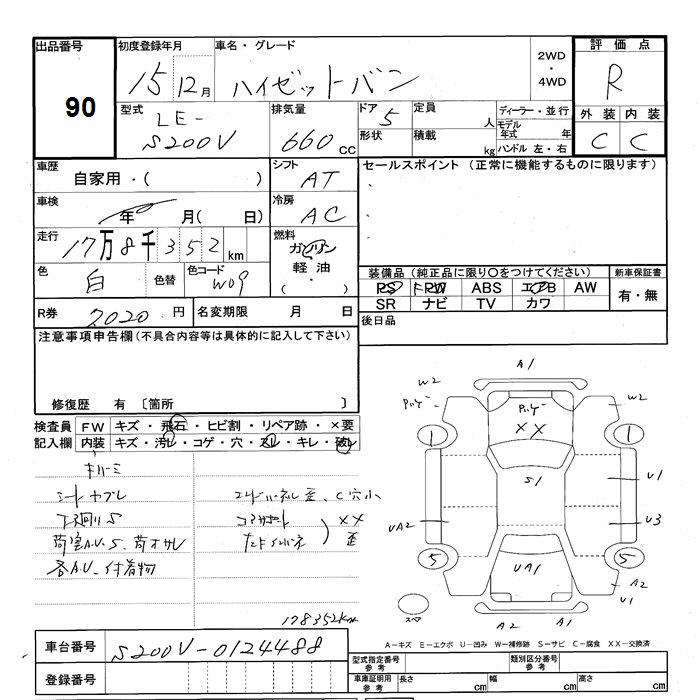 出品番号
90
初度登録年月
15年12月
車名・グレード
ハイゼットバン
2WD
・
4WD
評価点
R
外装 内装
C C
型式
LE-
S200V
排気量
660cc
ドア 5
形状
定員 人
積載 kg
ディーラー・並行
モデル年式 年
ハンドル 左・右
車歴
自家用・( )
シフト
AT
車検
年 月( 日)
冷房
AC
走行
17万8千352km
燃料
ガソリン
軽油
・( )
色
白
色替
色コード
W09
R券 7020円
名変期限 月 日
セールスポイント (正常に機能するものに限ります)
装備品(純正品に限り○をつけてください)
PS PW ABS エアB AW
SR ナビ TV カワ
新車保証書
有・無
後日品
注意事項申告欄(不具合内容等は具体的に記入して下さい)
修復歴 有 〔箇所 〕
検査員記入欄
FW キズ・飛石・ヒビ割・リペア跡・×要
内装 キズ・汚レ・コゲ・穴・スレ・キレ・破レ
シートヤブレ
荷室A.U.S、荷オサレ
各A.U、付着物
エンドパネル歪、C穴小
コアサポート
XX
歪
178352km
A1
W2
W2
XX
1
1
S1
U1
U3
UA2
5
5
UA1
A2
U1
スペア
A2
A1
A－キズ E－エクボ U－凹み W－補修跡 S－サビ C－腐食 XX－交換済
車台番号
S200V-0124488
登録番号
型式指定番号参考
類別区分番号参考
車庫証明用参考
長さ cm
幅 cm
高さ cm